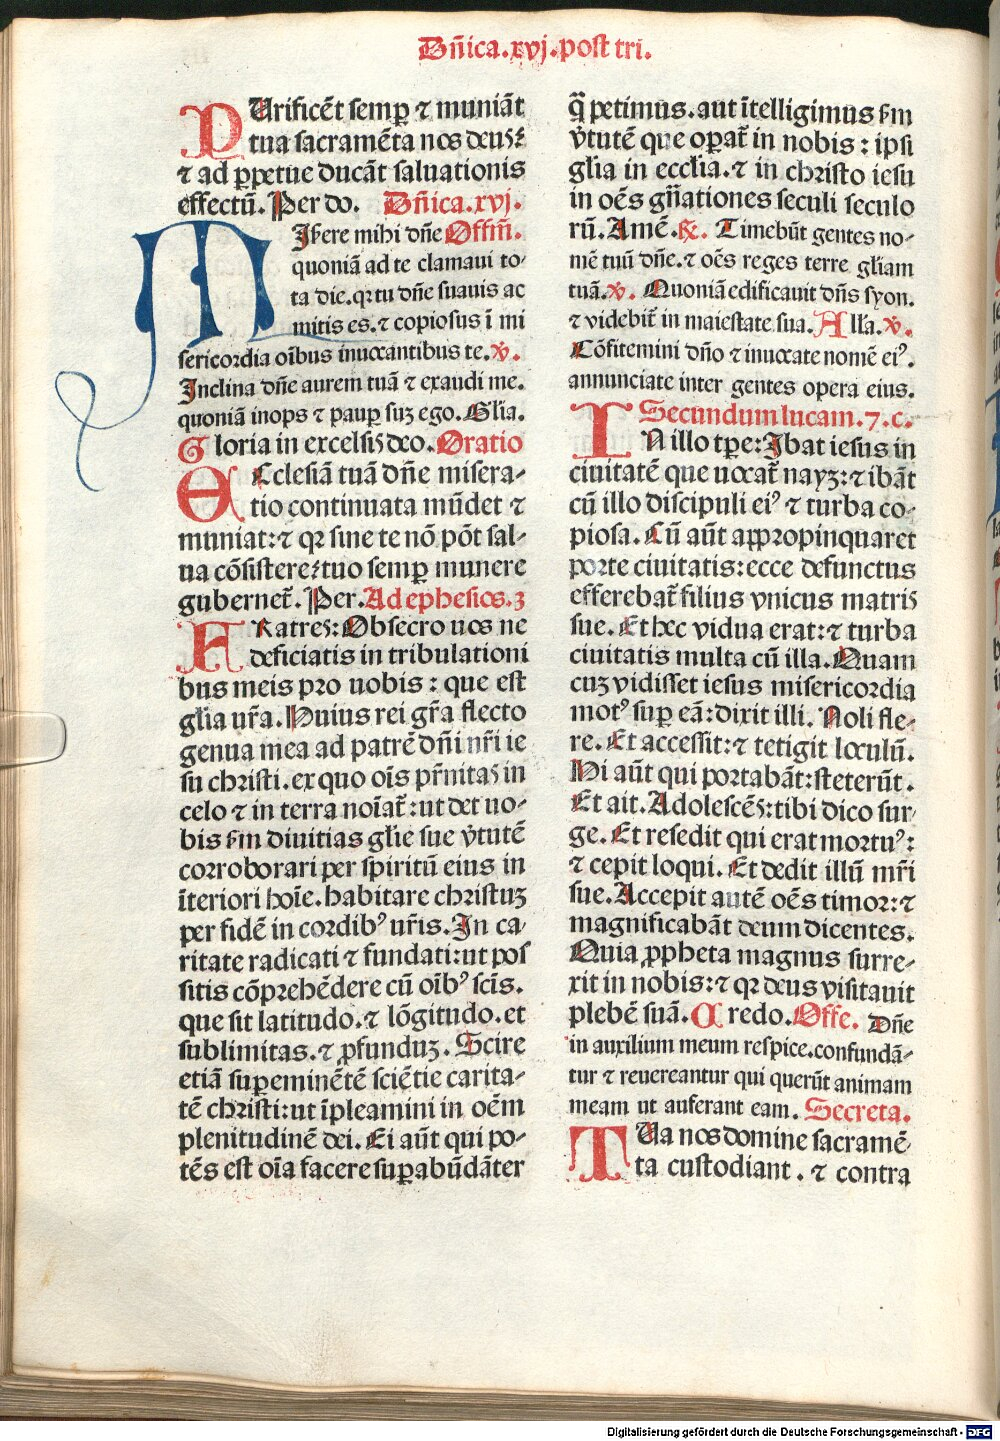 Dñica.xvj.post tri.
PUrificẽt semꝑ ⁊ muniãt
tua sacramẽta nos deus:
⁊ ad ꝑpetue ducãt saluationis
effectũ. Per do. Dñica.xvj.
MIẜere mihi dñe Offm̃.
quoniã ad te clamaui to-
ta die.qꝛ tu dñe suauis ac
mitis es.⁊ copiosus ĩ mi
sericordia oĩbus inuocantibus te.v̾.
Inclina dñe aurem tuã ⁊ exaudi me.
quoniã inops ⁊ pauꝑ suꝫ ego.Glia.
Gloria in excelsis deo. Oratio
ECclesiã tuã dñe misera-
tio continuata mũdet ⁊
muniat:⁊ qꝛ sine te nõ põt sal-
ua cõsistere:tuo semꝑ munere
gubernet̃. Per. Ad ephesios.3
FRatres: Obsecro uos ne
deficiatis in tribulationi
bus meis pro uobis: que est
gl̃ia ur̃a. Huius rei gr̃a flecto
genua mea ad patrẽ dñi nr̃i ie
su christi.ex quo oĩs pr̃nitas in
celo ⁊ in terra noĩat̃:ut det uo-
bis ẜm diuitias gl̃ie sue v̾tutẽ
corroborari per spiritũ eius in
ĩteriori hoĩe.habitare christuꝫ
per fidẽ in cordibꝰ ur̃is. In ca-
ritate radicati ⁊ fundati:ut pos
sitis cõprehẽdere cũ oĩbꝰ scĩs.
que sit latitudo.⁊ lõgitudo.et
sublimitas.⁊ ꝓfunduꝫ. Scire
etiã suꝑeminẽtẽ sciẽtie carita-
tẽ christi:ut ĩpleamini in oẽm
plenitudinẽ dei. Ei aũt qui po-
tẽs est oĩa facere suꝑabũdãter
q̃ petimus.aut ĩtelligimus ẜm
v̾tutẽ que oꝑat̃ in nobis: ipsi
gl̃ia in eccl̃ia.⁊ in christo iesu
in oẽs gñationes seculi seculo
rũ. Amẽ. ℟. Timebũt gentes no-
mẽ tuũ dñe.⁊ oẽs reges terre gl̃iam
tuã.v̾. Quoniã edificauit dñs syon.
⁊ videbit̃ in maiestate sua. All̃a.v̾.
Cõfitemini dño ⁊ inuocate nomẽ eiꝰ.
annunciate inter gentes opera eius.
Secundum lucam.7.c.
IN illo tꝑe: Ibat iesus in
ciuitatẽ que uocat̃ nayꝫ:⁊ ibãt
cũ illo discipuli eiꝰ ⁊ turba co-
piosa. Cũ aũt appropinquaret
porte ciuitatis:ecce defunctus
efferebat̃ filius vnicus matris
sue. Et hec vidua erat:⁊ turba
ciuitatis multa cũ illa. Quam
cuꝫ vidisset iesus misericordia
motꝰ suꝑ eã:dixit illi. Noli fle-
re. Et accessit:⁊ tetigit loculũ.
Hi aũt qui portabãt:steterũt.
Et ait. Adolescẽs:tibi dico sur-
ge. Et resedit qui erat mortuꝰ:
⁊ cepit loqui. Et dedit illũ mr̃i
sue. Accepit autẽ oẽs timor:⁊
magnificabãt deum dicentes.
Quia ꝓpheta magnus surre-
xit in nobis:⁊ qꝛ deus visitauit
plebẽ suã. Credo. Offe. Dñe
in auxilium meum respice.confundã-
tur ⁊ reuereantur qui querũt animam
meam ut auferant eam. Secreta.
TUa nos domine sacramẽ-
ta custodiant. ⁊ contra
Digitalisierung gefördert durch die Deutsche Forschungsgemeinschaft - DFG